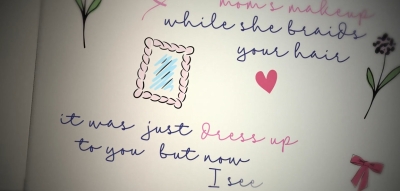 mom's makeup
while she braids
your hair
it was just dress up
to you but now
I see